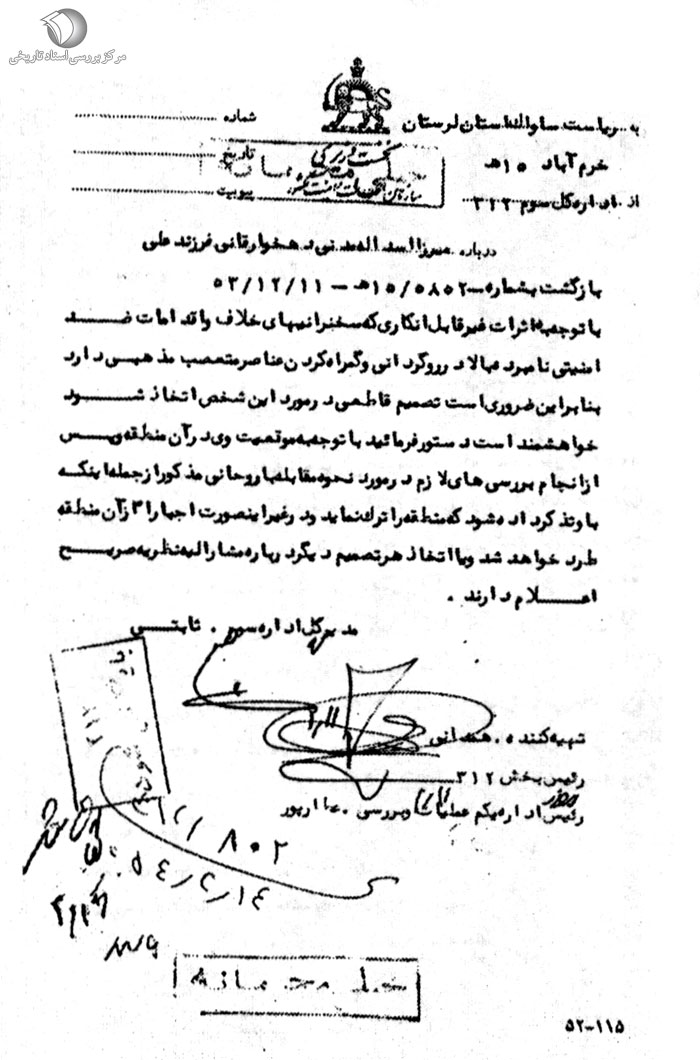 مرکز بررسی اسناد تاریخی
به ریاست ساواک استان لرستان
شماره
خرم آباد ۱۵ هـ
تاریخ
از اداره کل سوم ۳۱۲
پیوست
نخست وزیری
سازمان اطلاعات و امنیت کشور
درباره میرزا اسداله مدنی دهخوارقانی فرزند علی
بازگشت بشماره ۱۵/۵۸۰۲هـ - ۵۳/۱۲/۱۱
با توجه به اثرات غیرقابل انکاری که سخنرانیهای خلاف واقدامات ضـــد
امنیتی نامبرده بالا در روگردانی وگمراه کردن عناصر متعصب مذهبی دارد
بنابراین ضروری است تصمیم قاطعی در مورد این شخص اتخاذ شـــود
خواهشمند است دستور فرمائید با توجه به موقعیت وی در آن منطقه وپس
از انجام بررسی های لازم در مورد نحوه مقابله با روحانی مذکور از جمله اینکه
باو تذکر داده شود که منطقه را ترک نماید ودر غیر اینصورت اجبارا از آن منطقه
طرد خواهد شد ویا اتخاذ هر تصمیم دیگر درباره مشارالیه نظریه صریح
اعـــلام دارند .
مدیر کل اداره سوم . ثابتـــی
تهیه کننده . همدانی
رئیس بخش ۳۱۲
رئیس اداره یکم عملیات وبررسی . عطارپور
۸۰۲
۵۴/۲/۱۴
خیلی محرمانه
۵۲-۱۱۵